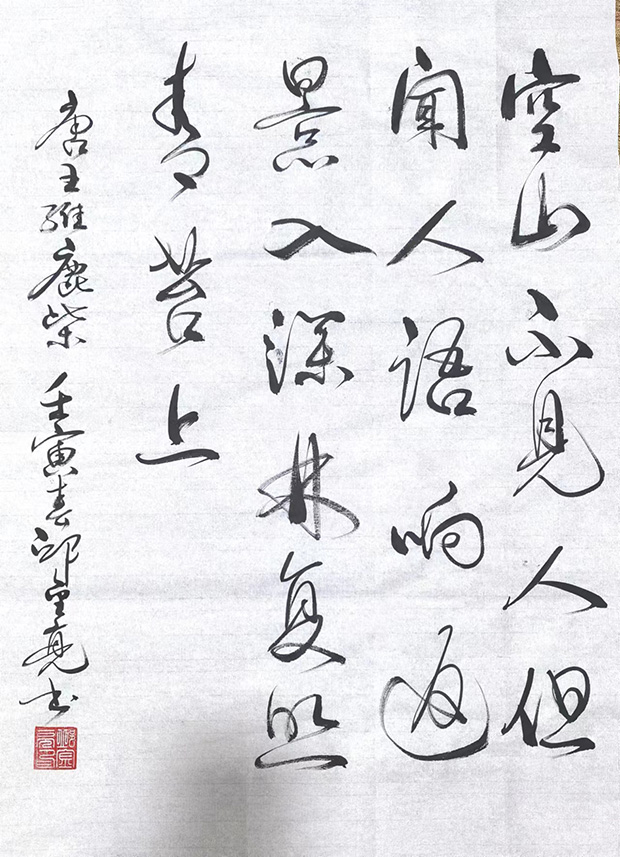 空山不見人但
闻人语响返
景入深林复照
青苔上
唐王維鹿柴 壬寅春邱宝亮书